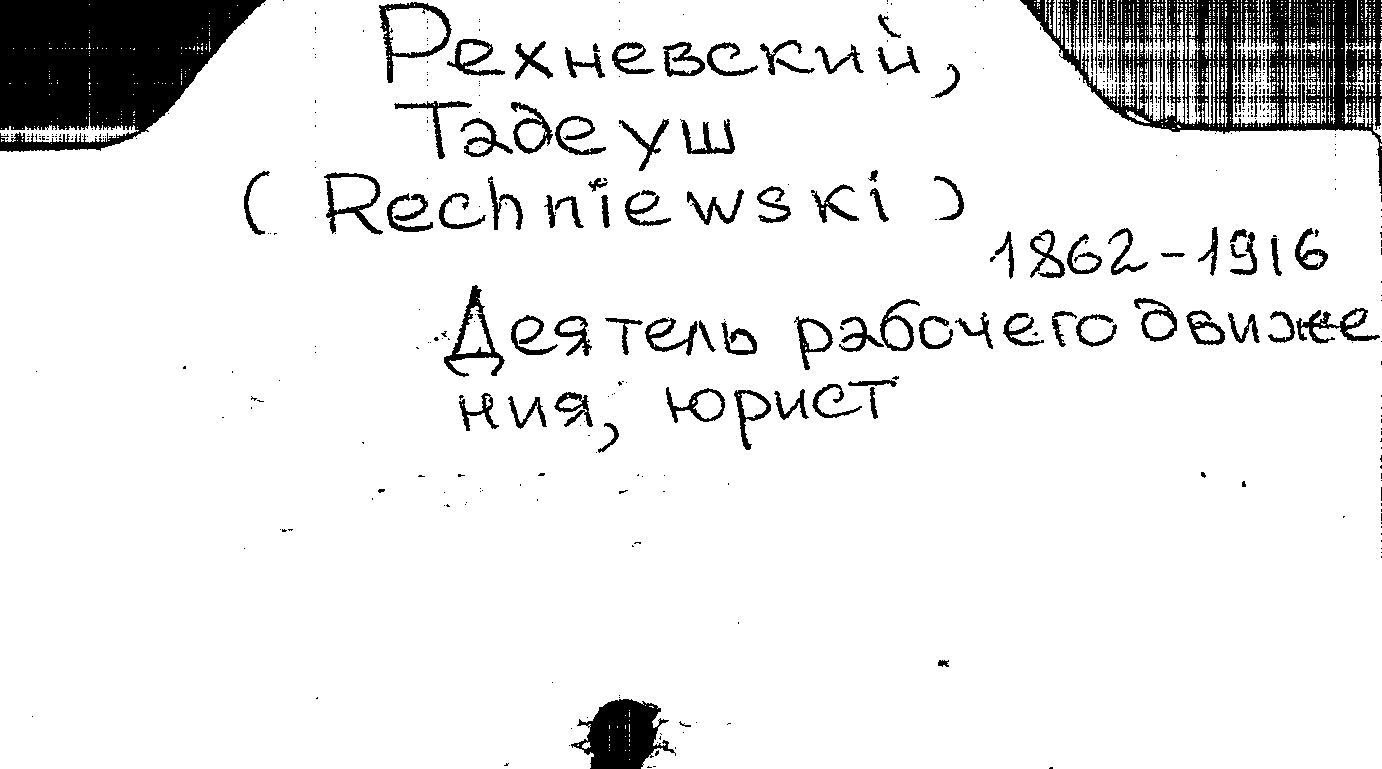 Рехневский,
Тадеуш
(Rechniewski)
1862-1916
Деятель рабочего движе
ния, юрист